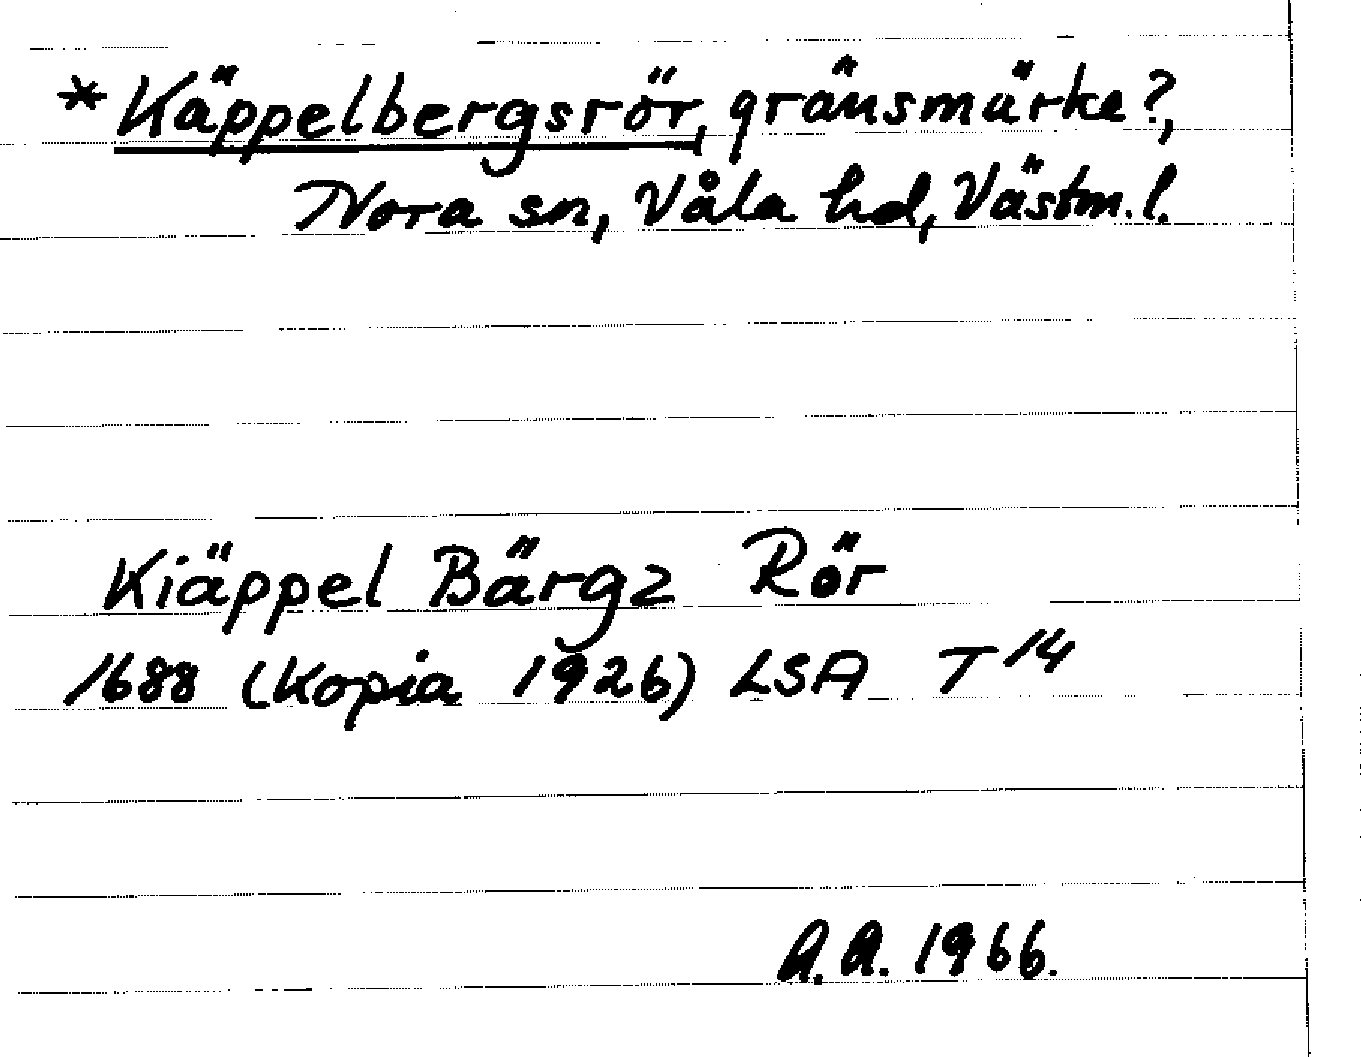 *Käppelbergsrör, gränsmärke?,
Nora sn, Våla hd, Västm. l.
Kiäppel Bärgz Rör
1688 (Kopia 1926) LSA T 14
A.A. 1966.